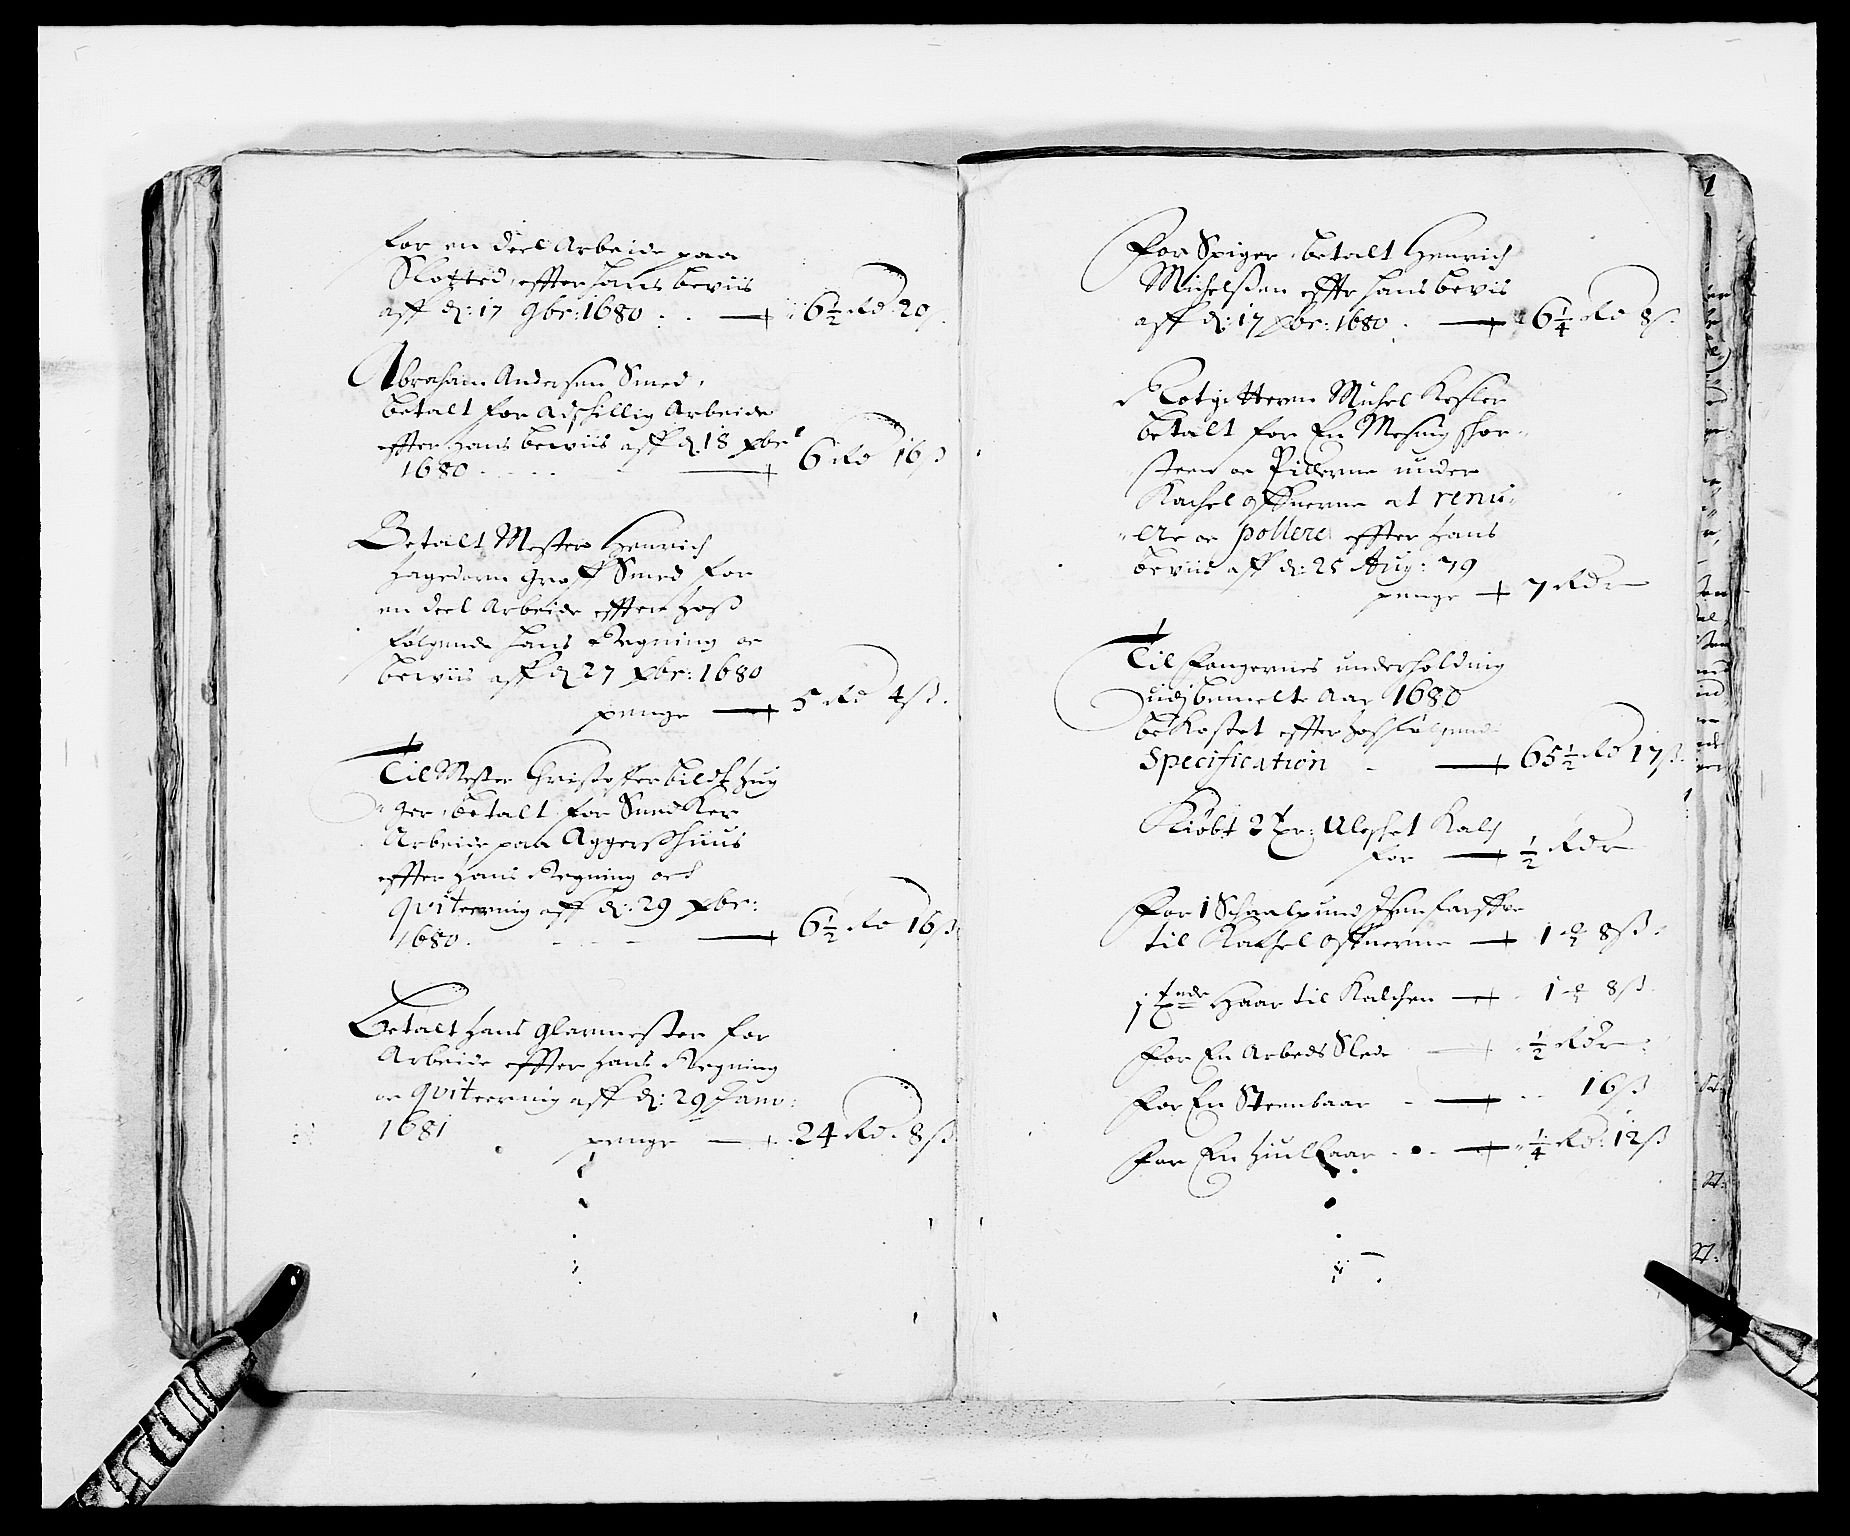 for en deel Arbeide paa
Slotted, effter hans beviis
aff d: 17 9br: 1680 6½ Rd 20
Abraham Andersen Smed,
betalt for adschillig Arbeide
effter hans beviis aff d. 18 xbr
1680 6 Rd 16 ß
Betalt Mester Henrich
Hagedorn Groff Smed for
en deel Arbeide effter hoß
følgende hans Regning oc
beviis aff d 27 xbr: 1680
penge 5 Rd 4 ß
Til Mester Christoffer bildt hug
ger, betalt for Snedker
Arbeide paa Aggerßhuus
effter hans Regning och
qviteering aff d: 29 xbr:
1680. 6½ Rd 16 ß
Betalt hans Glarmester for
Arbeide effter hans Regning
oc qviteering aff d: 29 Janv:
1681 penge 24 Rd. 8 ß
For Spiger, betalt Henrich
Michelßen effter hans bevis
aff d: 17 xbr: 1680. 6¼ Rd 8 ß
Rotgitterne Michel Kesler
betalt for En Mesing shor-
steen oc Pillerne under
Kachelofnerne at renu-
ere oc pollere effter hans
beviis aff d: 25 Aug: 79
penge 7 Rdr
Til Fangernes underholding
udj bemelte Aar 1680
bekostet effter hosfølgende
Specification 65½ Rd 17 ß
Kiøbt 2 Tr: Ulesket Kalch
for ½ Rdr
For 1 Schaalpund Isenfarffve
til Kachelofnerne 1 8 ß
1 Haar til Kalchen 1 8 ß
For En Arbeds Slede ½ Rdr
For En Steenbaar 16 ß
For En Hiulbaar ¼ Rd: 12 ß